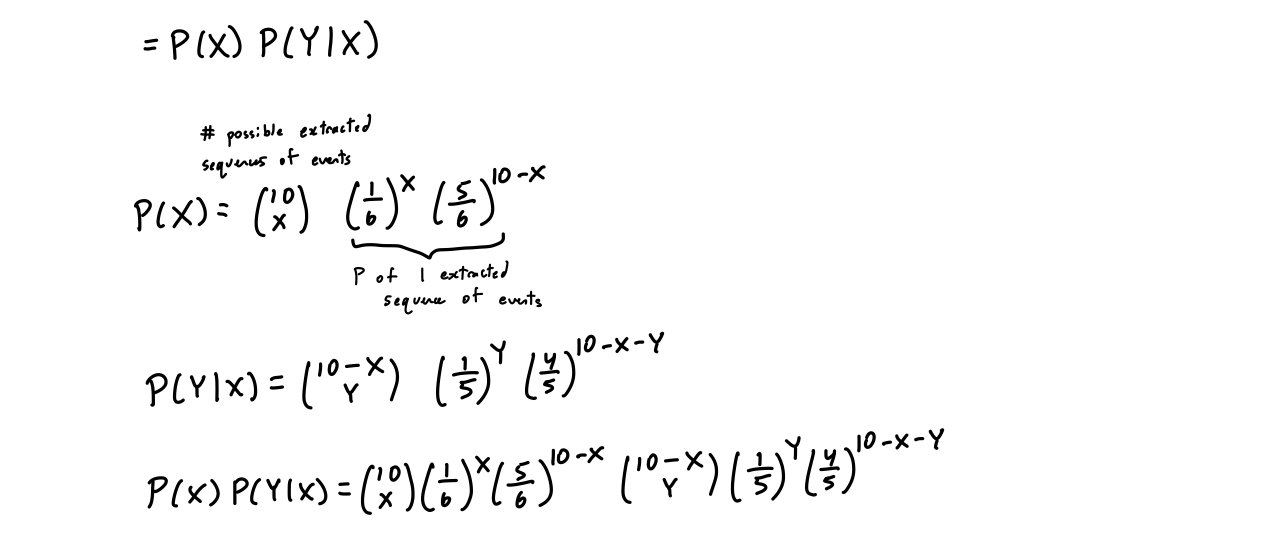 = P(X) P(Y|X)
# possible extracted
sequences of events
P(X) = (10 X) (1/6)^X (5/6)^{10-X}
P of 1 extracted
sequence of events
P(Y|X) = (10-X Y) (1/5)^Y (4/5)^{10-X-Y}
P(X) P(Y|X) = (10 X) (1/6)^X (5/6)^{10-X} (10-X Y) (1/5)^Y (4/5)^{10-X-Y}